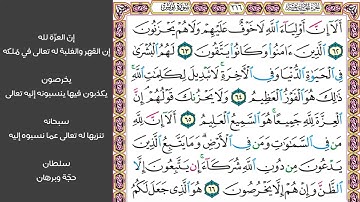 ٢١٦
أَلَآ إِنَّ أَوْلِيَآءَ ٱللَّهِ لَا خَوْفٌ عَلَيْهِمْ وَلَا هُمْ يَحْزَنُونَ
٦٢ ٱلَّذِينَ ءَامَنُوا۟ وَكَانُوا۟ يَتَّقُونَ ٦٣ لَهُمُ ٱلْبُشْرَىٰ
فِى ٱلْحَيَوٰةِ ٱلدُّنْيَا وَفِى ٱلْءَاخِرَةِ لَا تَبْدِيلَ لِكَلِمَٰتِ ٱللَّهِ
ذَٰلِكَ هُوَ ٱلْفَوْزُ ٱلْعَظِيمُ ٦٤ وَلَا يَحْزُنكَ قَوْلُهُمْ إِنَّ
ٱلْعِزَّةَ لِلَّهِ جَمِيعًا هُوَ ٱلسَّمِيعُ ٱلْعَلِيمُ ٦٥ أَلَآ إِنَّ لِلَّهِ
مَن فِى ٱلسَّمَٰوَٰتِ وَمَن فِى ٱلْأَرْضِ وَمَا يَتَّبِعُ ٱلَّذِينَ
يَدْعُونَ مِن دُونِ ٱللَّهِ شُرَكَآءَ إِن يَتَّبِعُونَ إِلَّا
ٱلظَّنَّ وَإِنْ هُمْ إِلَّا يَخْرُصُونَ ٦٦ هُوَ ٱلَّذِى جَعَلَ لَكُمُ
إنّ العزّة لله
إن القهر والغلبة له تعالى في مُلكه
يخرصون
يكذبون فيها ينسبونه إليه تعالى
سبحانه
تنزيها له تعالى عما نسبوه إليه
سلطان
حجّة وبرهان